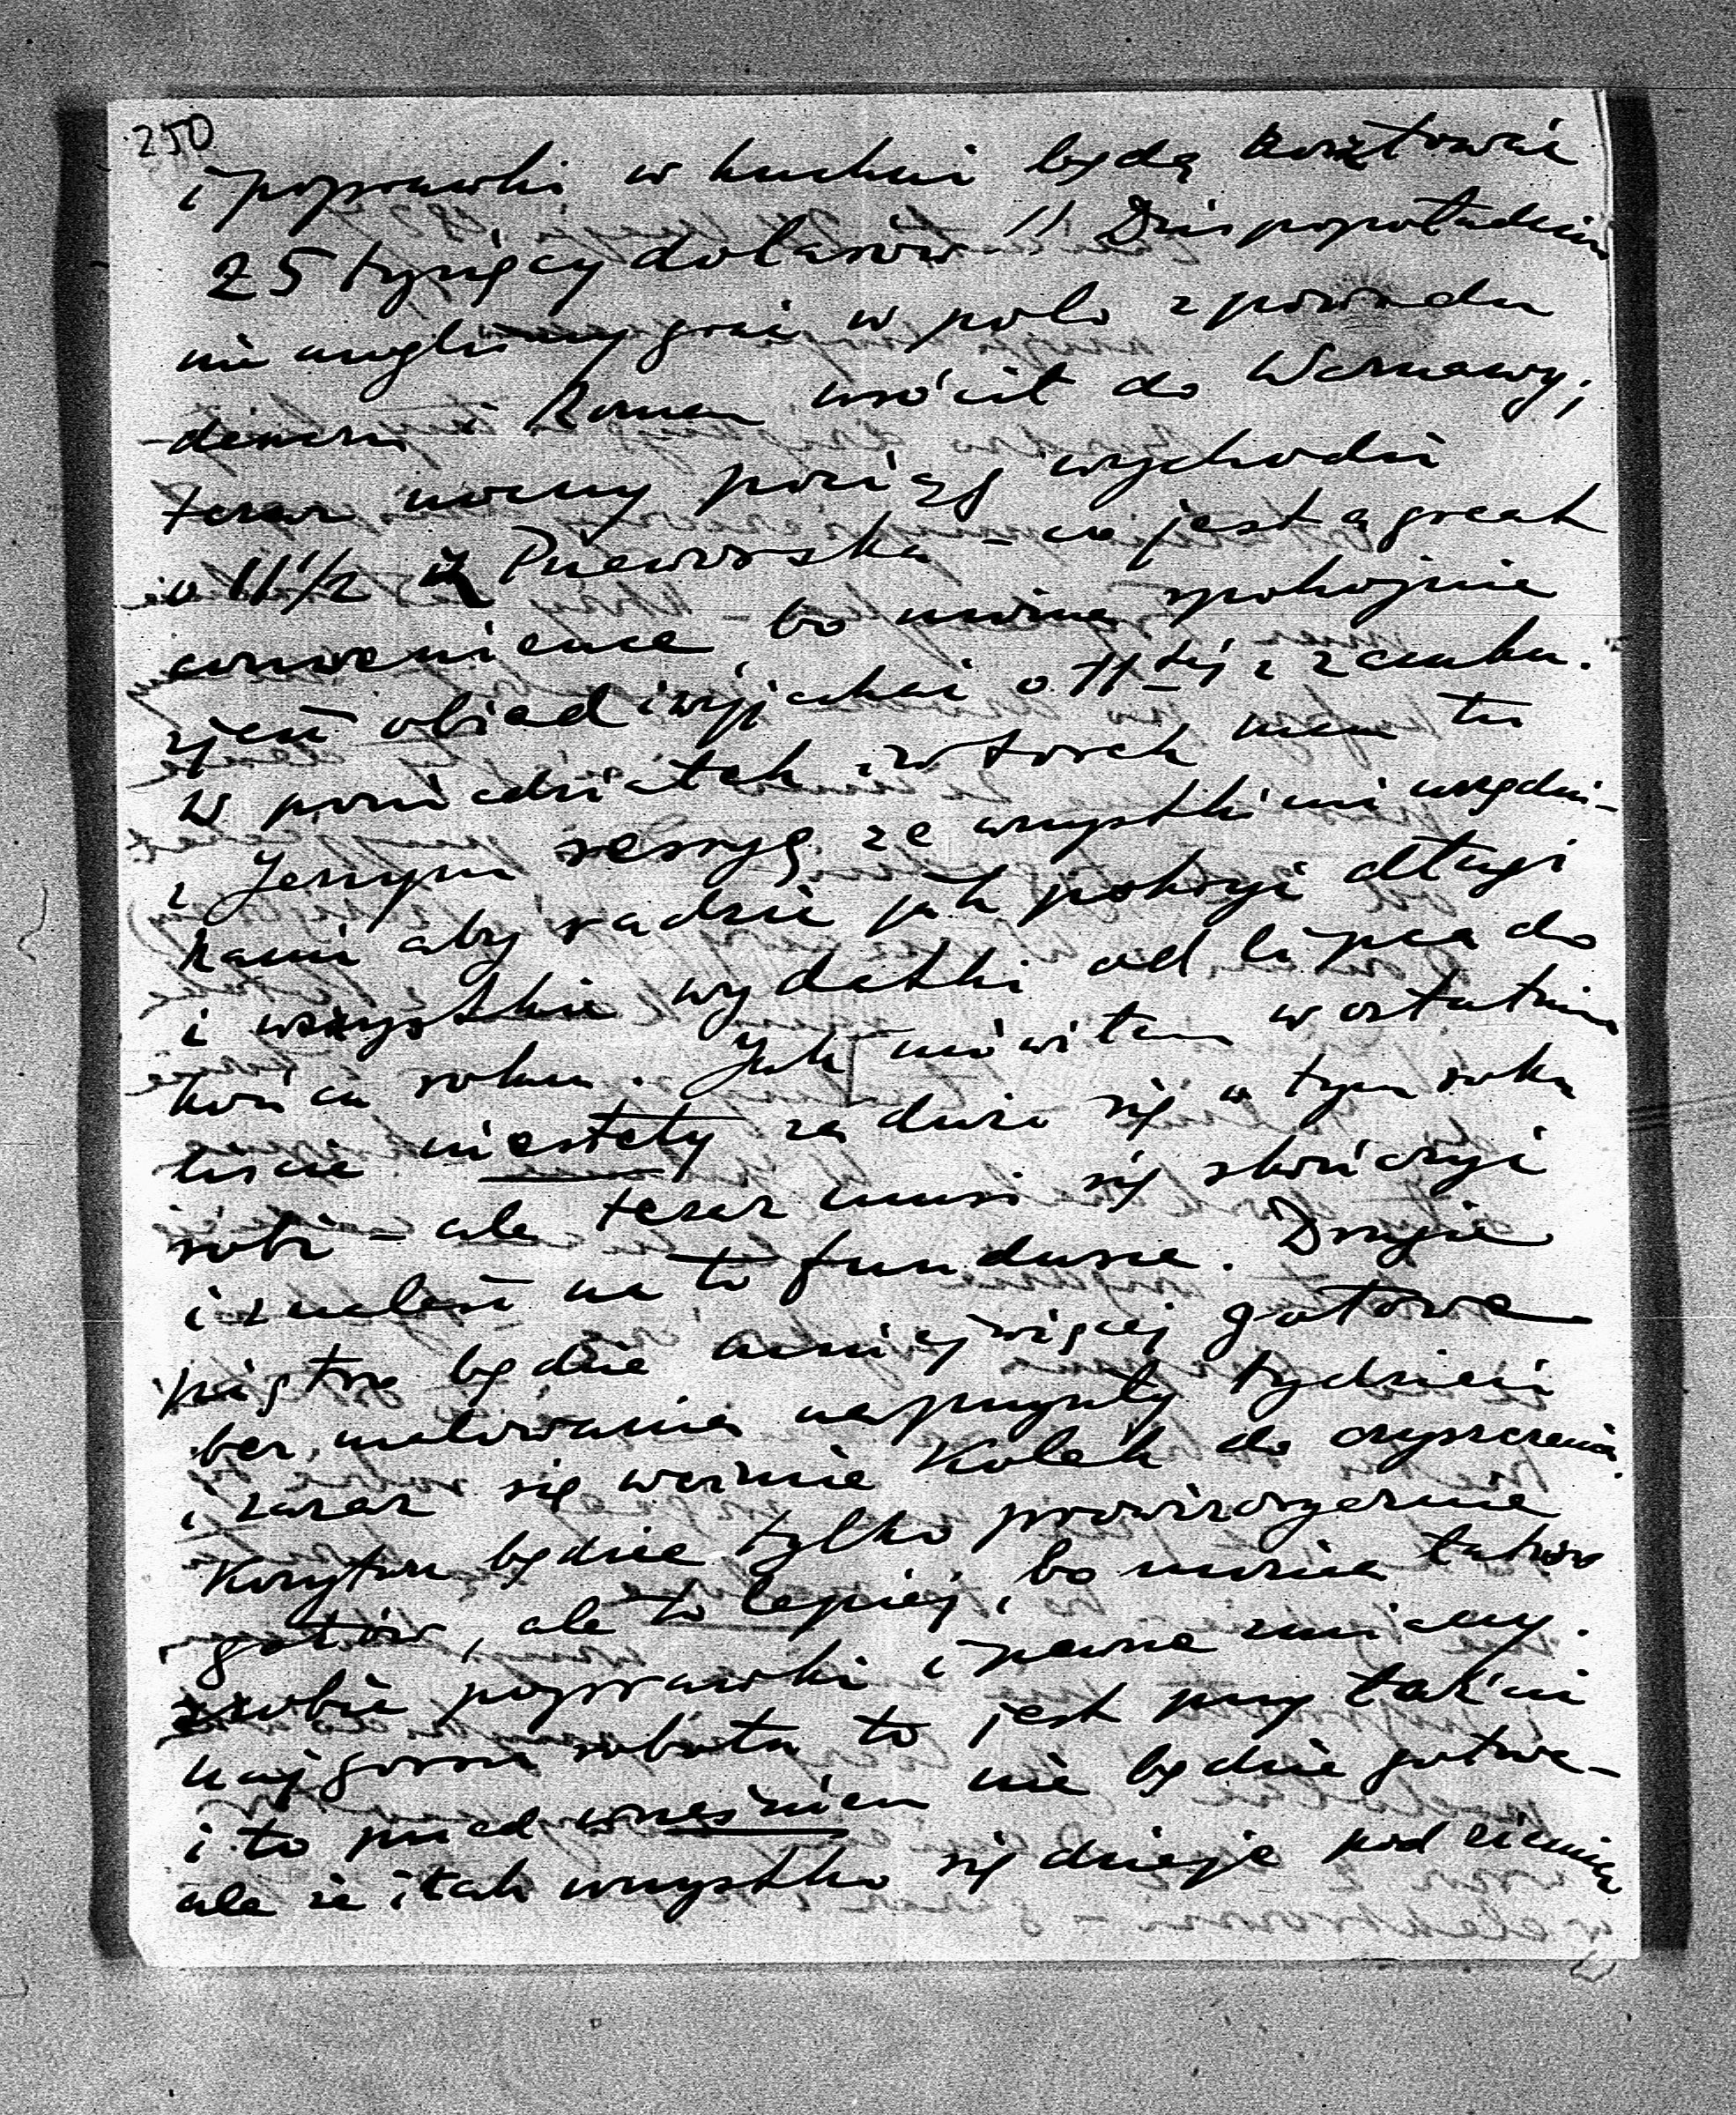 250
i poprawki w kuchni będą kosztować
25 tysięcy dolarów!! Dziś popołudniu
nie mogliśmy grać w polo z powodu
deszczu i Roman wrócił do Warszawy,
teraz nocny pociąg wychodzi
o 11 1/2 z Przeworska – co jest a great
convenience – bo można spokojnie
zjeść obiad i wyjechać o 11-tej z zamku.
W poniedziatek i wtorek mam tu
z Jerzym sesyę ze wszystkimi urzędni-
kami aby radzić jak pokryć długi
i wszystkie wydatki od lipca do
końca roku. Jak mówiłam w ostatnim
liście niestety za dużo się w tym roku
robi – ale teraz musi się skończyć
i znaleść na to fundusze. Drugie
piętro będzie mniej więcej gotowe
bez malowania na przyszły tydzień
i zaraz się weźmie Kolek do czyszczenia.
Korytarz będzie tylko prowizorycznie
gotów, ale to lepiej, bo można łatwo
zrobić poprawki i pewne zmiany.
Najgorsza robota to jest przy
i to przed wrześniem nie będzie gotowe –
ale że i tak wszystko się dzieje pod ziemią